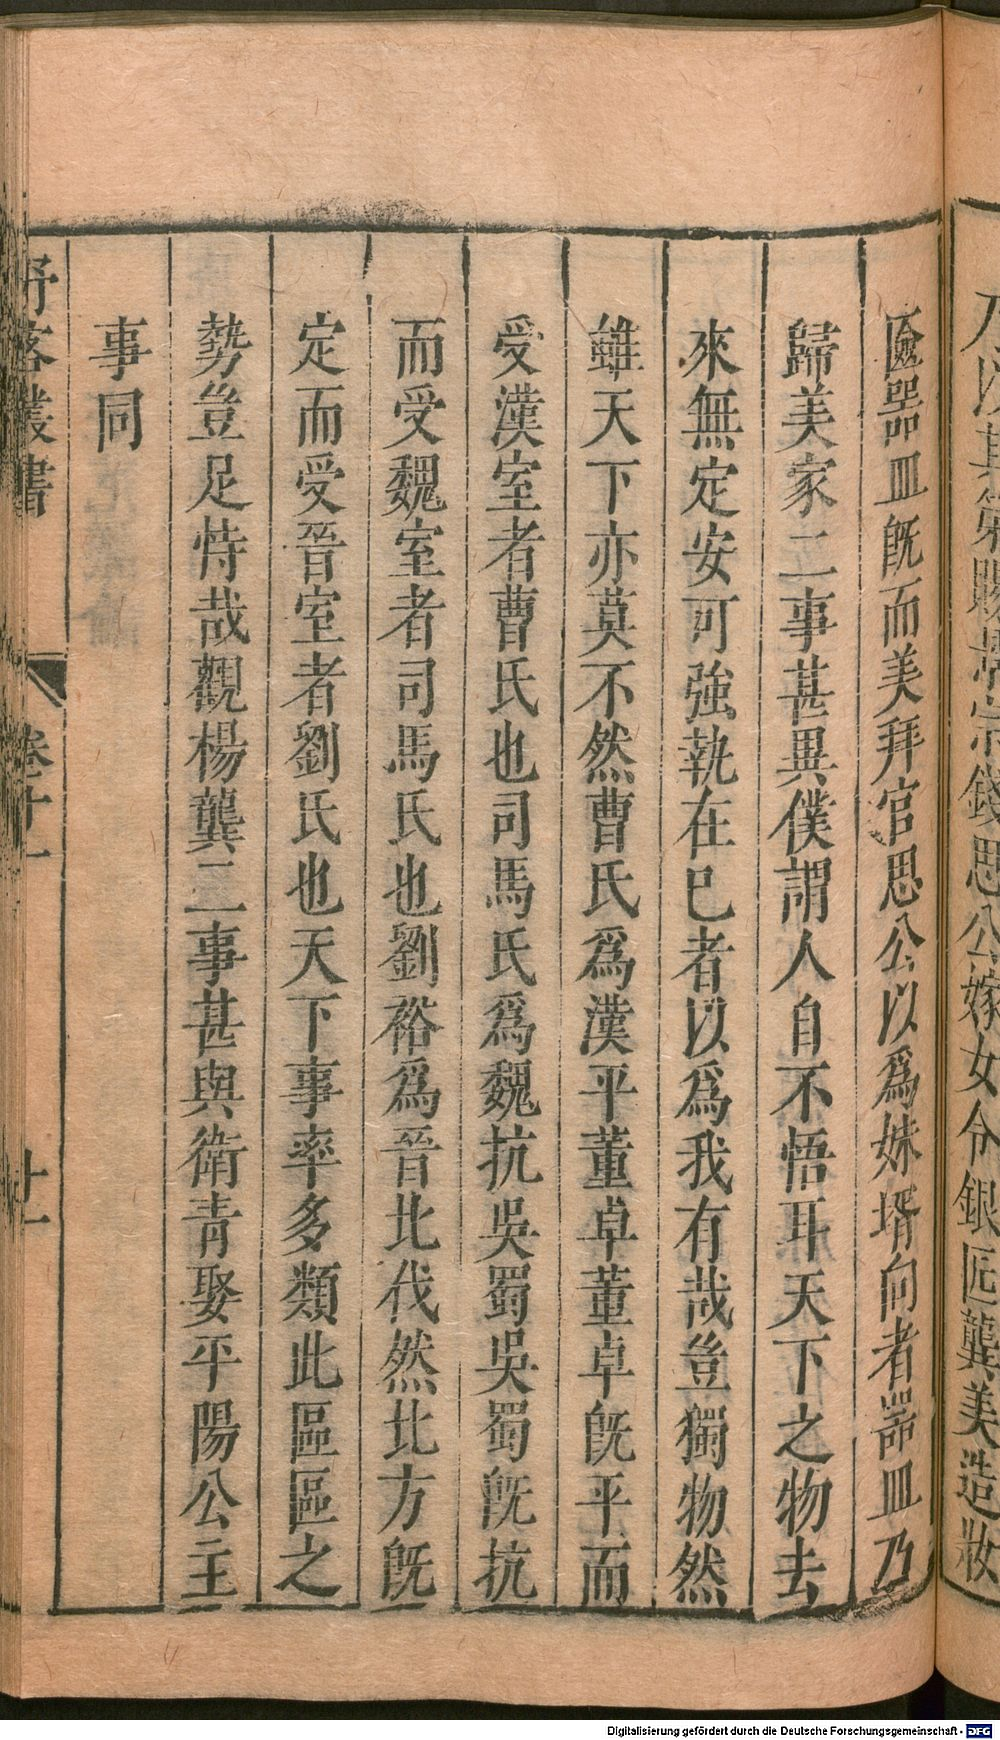 乃以其第賜景宗錢思公嫁女令銀匠龔美造妝
匳器皿旣而美拜官思公以爲妹壻向者器皿乃
歸美家二事甚異僕謂人自不悟耳天下之物去
來無定安可強執在已者以爲我有哉豈獨物然
雖天下亦莫不然曹氏爲漢平董卓董卓旣平而
受漢室者曹氏也司馬氏爲魏抗吳蜀吳蜀旣抗
而受魏室者司馬氏也劉裕爲晉北伐然北方旣
定而受晉室者劉氏也天下事率多類此區區之
勢豈足恃哉觀楊龔二事甚與衛青娶平陽公主
事同
野客叢書
卷十一
廿一
Digitalisierung gefördert durch die Deutsche Forschungsgemeinschaft - DFG